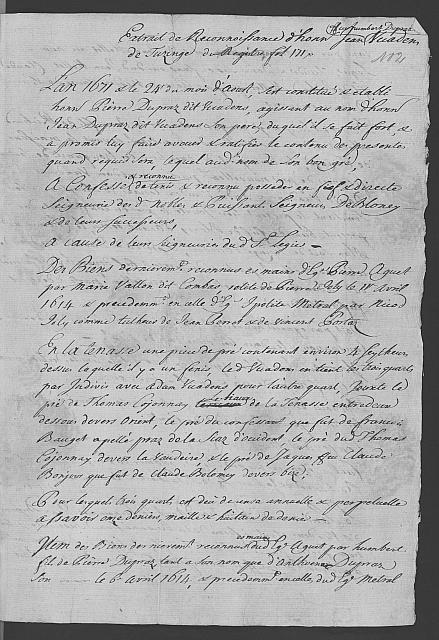 Extrait de Reconnoissance d'honn. Jean Vuadens
feu humbert Dupraz
de Turinge du Registre fol. 171.
1121
L'an 1671 & le 24e du mois d'aoust, s'est constitué & establi
honn. Pierre Dupraz dit Vuadens, agissant au nom d'honn.
Jean Dupraz dit Vuadens son pere, duquel il se fait fort, &
a promis luy faire avouer & ratifier le contenu des presentes
quand requis sera, lequel aud. nom de son bon gré,
A Confessé & reconnu de tenir & reconnu posseder en fief & directe
Seigneurie des d. Nobles & Puissant Seigneur De Blonay
& de leurs successeurs,
a cause de leurs seigneuries du d. St. Legier
Des Biens dernierem.t reconnus es mains d'Eg. Pierre Aguet
par Marie Vallon dit Combes relicte de Pierre Joly le 11e Avril
1614 & precedemm.t en celle d'Eg. Ipolite Metral par Nicod
Joly comme tutheur de Jean Perrot & de Vincent
En la tenasse une piece de pré contenant environ 4 seyteurs
dessus laquelle il y a un fenil, led. Vuadens en tient les trois quarts
par Indivis avec Adan Vuadens pour l'autre quart, Jouxte le
pré de Thomas Cojonnay le haut de la Tenasse entredeux
dessous devers orient, le pré du confessant que fut de françois
Bauget apellé praz de la Scaz d'occident, le pré dud. Thomas
Cojonnay devers la vaudaire & le pré de Jaques feu Claude
Bonjour que fut de Claude Bolomey devers bize,
Pour lesquels trois quarts est deu de cense annuelle & perpetuelle
assavoir onze deniers, maille & huitain de denier
Item des Biens dernierem.t reconnus es mains dud. Eg. Aguet par humbert
fils de Pierre Dupraz tant a son nom que d'Anthoene Dupraz
son le 6e Avril 1614, & precedemm.t en celle dud. Eg. Metral